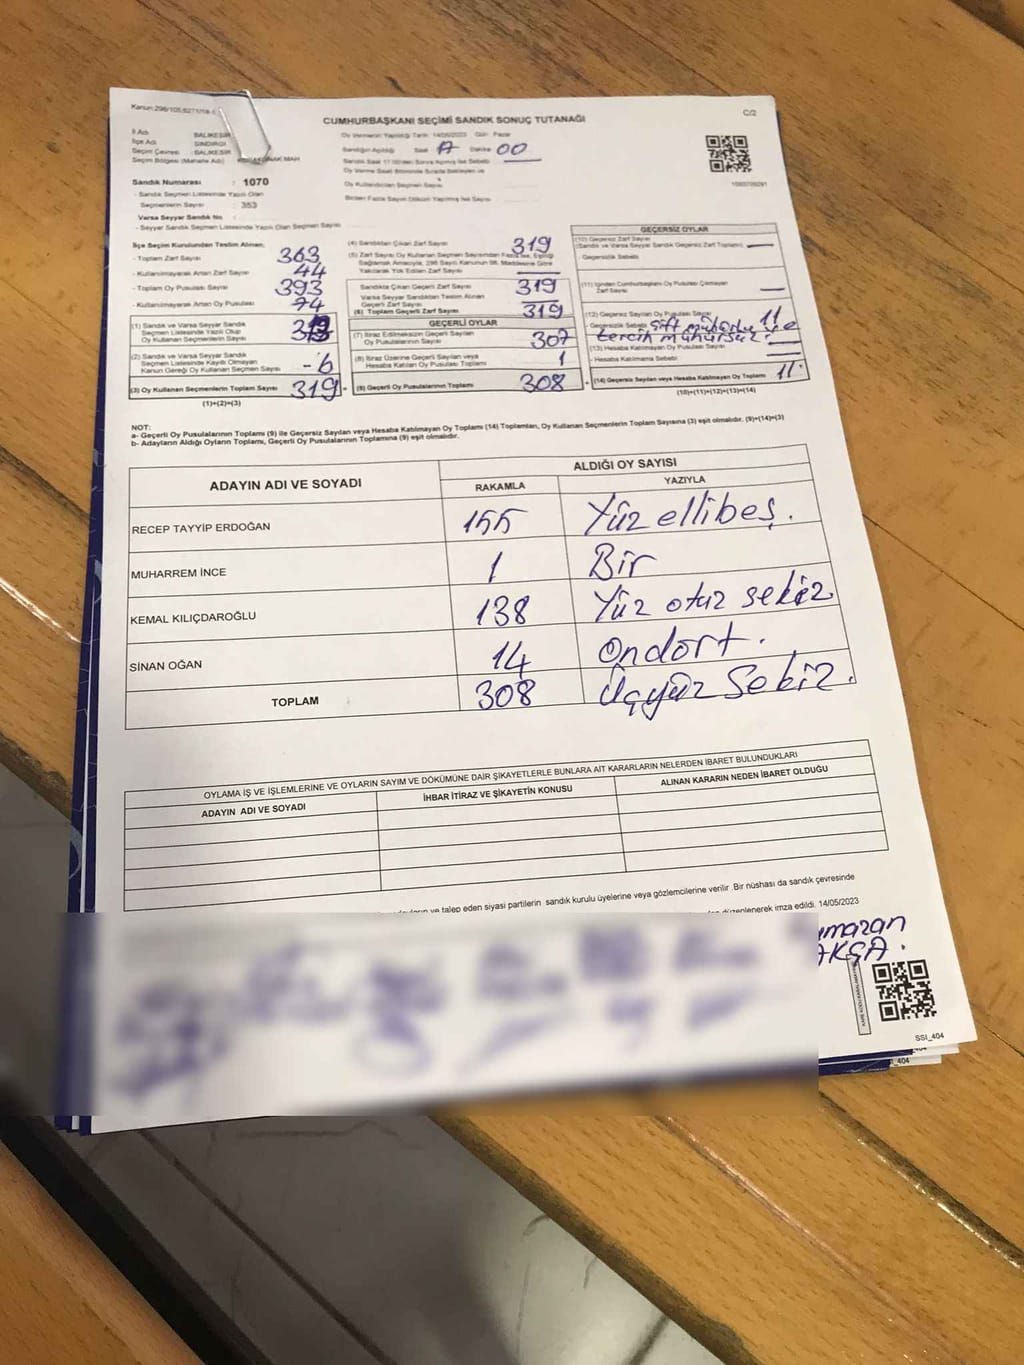 Kanun:298/105;6271/18-
CUMHURBAŞKANI SEÇİMİ SANDIK SONUÇ TUTANAĞI
C/2
İl Adı : BALIKESİR
İlçe Adı : SINDIRGI
Seçim Çevresi : BALIKESİR
Seçim Bölgesi (Mahalle Adı) MAH
Oy Vermenin Yapıldığı Tarih: 14/05/2023 Gün: Pazar
Sandığın Açıldığı Saat Dakika 00
Sandık Numarası : 1070
- Sandık Seçmen Listesinde Yazılı Olan
Seçmenlerin Sayısı : 353
Varsa Seyyar Sandık No :
- Seyyar Sandık Seçmen Listesinde Yazılı Olan Seçmen Sayısı
Oy Kullandırılan Seçmen Sayısı
İlçe Seçim Kurulundan Teslim Alınan;
- Toplam Zarf Sayısı 363
- Kullanılmayarak Artan Zarf Sayısı 44
- Toplam Oy Pusulası Sayısı 393
- Kullanılmayarak Artan Oy Pusulası 74
(1) Sandık ve Varsa Seyyar Sandık
Seçmen Listesinde Yazılı Olup
Oy Kullanan Seçmenlerin Sayısı
(2) Sandık ve Varsa Seyyar Sandık
Seçmen Listesinde Kayıtlı Olmayan
Kanun Gereği Oy Kullanan Seçmen Sayısı - 6
(3) Oy Kullanan Seçmenlerin Toplam Sayısı 319
(1)+(2)=(3)
(4) Sandıktan Çıkan Zarf Sayısı 319
Sandıkta Çıkan Geçerli Zarf Sayısı 319
Varsa Seyyar Sandıktan Teslim Alınan
Geçerli Zarf Sayısı
(6) Toplam Geçerli Zarf Sayısı 319
GEÇERLİ OYLAR
(7) İtiraz Edilmeksizin Geçerli Sayılan
Oy Pusulasının Sayısı 307
(8) İtiraz Üzerine Geçerli Sayılan veya
Hesaba Katılan Oy Pusulası Sayısı 1
(9) Geçerli Oy Pusulalarının Toplamı 308
GEÇERSİZ OYLAR
(10) Geçersiz Zarf Sayısı
(Sandık ve Varsa Seyyar Sandık Geçersiz Zarf Toplamı)
- Geçersizlik Sebebi
(11) İçinden Cumhurbaşkanı Oy Pusulası Çıkmayan
Zarf Sayısı
(12) Geçersiz Sayılan Oy Pusulası Sayısı 11
- Geçersizlik Sebebi Çift mühürlü ve
tercih mühürsüz.
(13) Hesaba Katılmayan Oy Pusulası Sayısı
- Hesaba Katılmama Sebebi
(14) Geçersiz Sayılan veya Hesaba Katılmayan Oy Toplamı 11
(10)+(11)+(12)+(13)=(14)
NOT:
a- Geçerli Oy Pusulalarının Toplamı (9) ile Geçersiz Sayılan veya Hesaba Katılmayan Oy Toplamı (14) Toplamları, Oy Kullanan Seçmenlerin Toplam Sayısına (3) eşit olmalıdır. (9)+(14)=(3)
b- Adayların Aldığı Oyların Toplamı, Geçerli Oy Pusulalarının Toplamına (9) eşit olmalıdır.
ADAYIN ADI VE SOYADI
ALDIĞI OY SAYISI
RAKAMLA YAZIYLA
RECEP TAYYİP ERDOĞAN 155 Yüz ellibeş.
MUHARREM İNCE 1 Bir
KEMAL KILIÇDAROĞLU 138 Yüz otuz sekiz
SİNAN OĞAN 14 Ondört.
TOPLAM 308 Üçyüz Sekiz.
OYLAMA İŞ VE İŞLEMLERİNE VE OYLARIN SAYIM VE DÖKÜMÜNE DAİR ŞİKAYETLERLE BUNLARA AİT KARARLARIN NELERDEN İBARET BULUNDUKLARI
ADAYIN ADI VE SOYADI İHBAR İTİRAZ VE ŞİKAYETİN KONUSU ALINAN KARARIN NEDEN İBARET OLDUĞU
ve talep eden siyasi partilerin sandık kurulu üyelerine veya gözlemcilerine verilir .Bir nüshası da sandık çevresinde
düzenlenerek imza edildi. 14/05/2023
AKÇA.
SSI_404